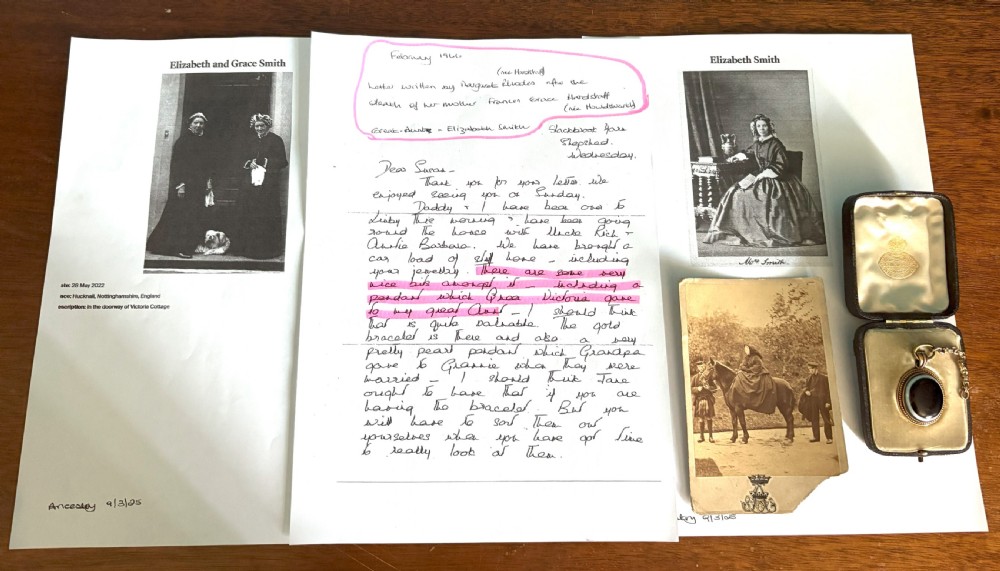 Elizabeth and Grace Smith
28 May 2022
Hucknall, Nottinghamshire, England
in the doorway of Victoria Cottage
Ancestry 9/3/25
February
(nee Handstaff)
Letter written by Margaret Rhodes after the
death of her mother Frances Grace Handstaff
(nee Houldsworth)
Great-Aunt - Elizabeth Smith
Shepshed.
Wednesday.
Dear Susan -
Thank you for your letter. We
enjoyed seeing you on Sunday.
Daddy + I have been over to
Linby this morning + have been going
round the house with Uncle Rich +
Auntie Barbara. We have brought a
car load of stuff home - including
your jewellry. There are some very
nice bits amongst it - including a
pendant which Queen Victoria gave
to my great Aunt - I should think
that is quite valuable. The gold
bracelet is there and also a very
pretty pearl pendant which Grandpa
gave to Grannie when they were
married - I should think Jane
ought to have that if you are
having the bracelet. But you
will have to sort them out
yourselves when you have got time
to really look at them.
Elizabeth Smith
Mrs Smith
9/3/25